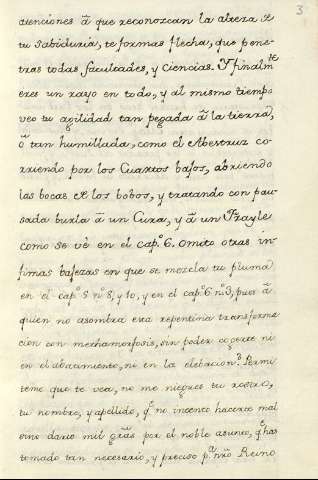 3
atenciones â que reconozcan la alteza de
tu Sabiduria, te formas flecha, que pene-
tras todas facultades, y Ciencias. Y finalm.te
eres un rayo en todo, y al mismo tiempo
veo tu agilidad tan pegada â la tierra,
ô tan humillada, como el Abestruz co-
rriendo por los Cuartos bajos, abriendo
las bocas de los bobos, y tratando con pau-
sada burla â un Cura, y â un Frayle
como se vè en el cap.º 6. omito otras in-
fimas bajezas en que se mezcla tu pluma
en el cap.º 5 n.º 8, y 10, y en el cap.º 6 n.º 3, pues â
quien no asombra esta repentina transforma
cion con methamorfosis, sin poder cogerte ni
en el abatimiento, ni en la elebacion? Permi
teme que te vea, no me niegues tu rostro,
tu nombre, y apellido, q.e no intento hacerte mal
sino darte mil gra.s por el noble asunto, q.e has
tomado tan necesario, y preciso p.a nrô Reino